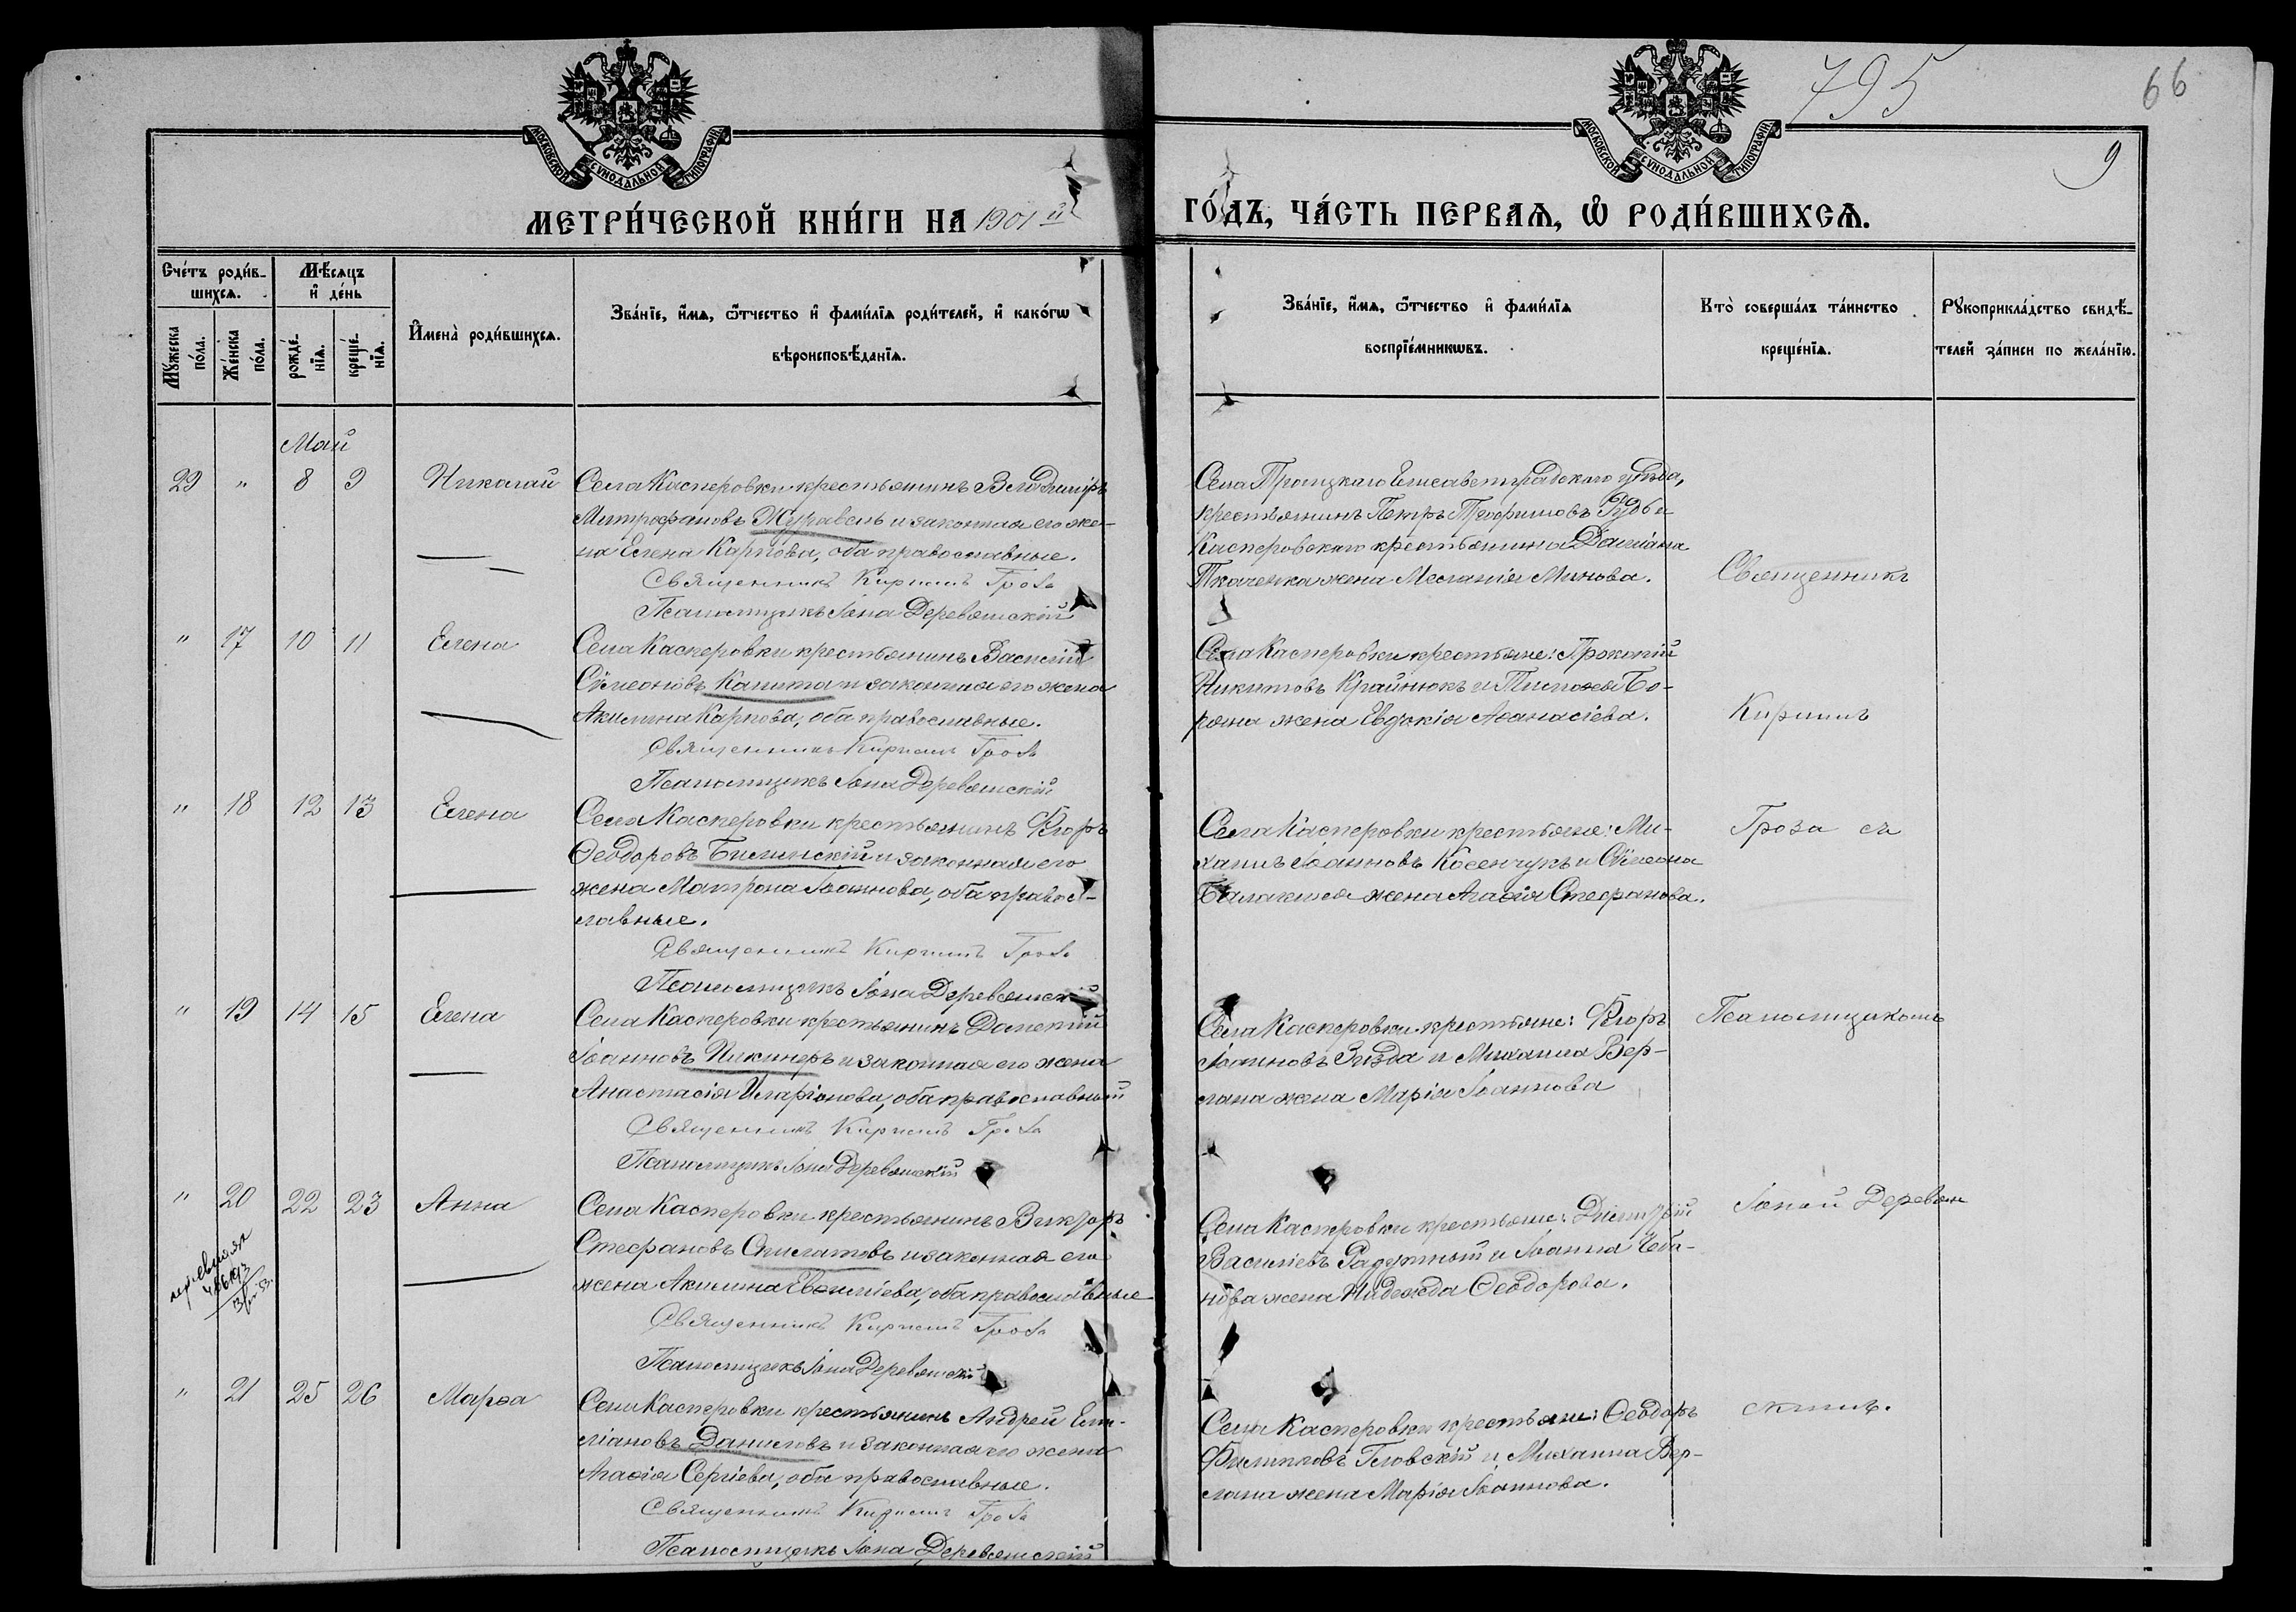 795
66
9
МОСКОВСКОЙ СѴНОДАЛЬНОЙ ТИПОГРАФІИ
МОСКОВСКОЙ СѴНОДАЛЬНОЙ ТИПОГРАФІИ
МЕТРИ́ЧЕСКОЙ КНИ́ГИ НА 1901 й
ГО́ДЪ, ЧА́СТЬ ПЕРВАѦ, Ѡ҆ РОДИ́ВШИХСѦ.
Сче́тъ роди́в-
шихсѧ.
Мꙋ́жеска по́ла.
Же́нска по́ла.
Мѣ́сѧцъ
и҆ де́нь
рожде́-
нїѧ.
креще́-
нїѧ.
И҆мена̀ роди́вшихсѧ.
Зва́нїе, и҆́мѧ, ѻ҆́тчество и҆ фами́лїѧ роди́телей, и҆ како́гѡ
вѣроисповѣ́данїѧ.
Зва́нїе, и҆́мѧ, ѻ҆́тчество и҆ фами́лїѧ
воспрїе́мникѡвъ.
Кто̀ соверша́лъ та́инство
креще́нїѧ.
Рꙋкоприкла́дство свидѣ́-
телей за́писи по жела́нїю.
Май
29 " 8 9 Николай
Села Касперовки крестьянинъ Владиміръ
Митрофановъ Журавель и законная его же-
на Елена Карпова, оба православные.
Священникъ Кириллъ Гроза
Псаломщикъ Іона Деревянскій
Села Троицкаго Елисаветградскаго уѣзда,
крестьянинъ Петръ Трофимовъ и
Касперовскаго крестьянина Даміана
Ткаченка жена Меланія Минова.
Священникъ
" 17 10 11 Елена
Села Касперовки крестьянинъ Василій
Сѵмеоновъ Калита и законная его жена
Акилина Карпова, оба православные.
Священникъ Кириллъ Гроза
Псаломщикъ Іона Деревянскій
Села Касперовки крестьяне: Прокопій
Никитовъ Крайнюкъ и Тимоѳея Бо-
рона жена Евдокія Аѳанасіева.
Кириллъ
" 18 12 13 Елена
Села Касперовки крестьянинъ Егоръ
Ѳеодоровъ Билинскій и законная его
жена Матрона Іоаннова, оба правос-
лавные.
Священникъ Кириллъ Гроза
Псаломщикъ Іона Деревянскій
Села Касперовки крестьяне: Ми-
хаилъ Іоанновъ Косенчукъ и Сѵмеона
жена Агаѳія Стефанова.
Гроза съ
" 19 14 15 Елена
Села Касперовки крестьянинъ
Іоанновъ Пикинеръ и законная его жена
Анастасія Иларіонова, оба православный
Священникъ Кириллъ Гроза
Псаломщикъ Іона Деревянскій
Села Касперовки крестьяне: Егоръ
Іоанновъ и Михаила Вер-
лана жена Марія Іоаннова
Псаломщикомъ
" 20 22 23 Анна
Села Касперовки крестьянинъ Викторъ
Стефановъ и законная его
жена Акилина Евѳиміева, оба православные
Священникъ Кириллъ Гроза
Псаломщикъ Іона Деревянскій
Села Касперовки крестьяне: Димитрій
Василіевъ Радужный и Іоанна Чеба-
нова жена Надежда Ѳеодорова.
Іоной Деревян
" 21 25 26 Марѳа
Села Касперовки крестьянинъ Андрей Еми-
ліановъ Даниловъ и законная его жена
Агаѳія Сергіева, оба православные.
Священникъ Кириллъ Гроза
Псаломщикъ Іона Деревянскій
Села Касперовки крестьяне: Ѳеодоръ
Филипповъ и Михаила Вер-
лана жена Марія Іоаннова.
скимъ.